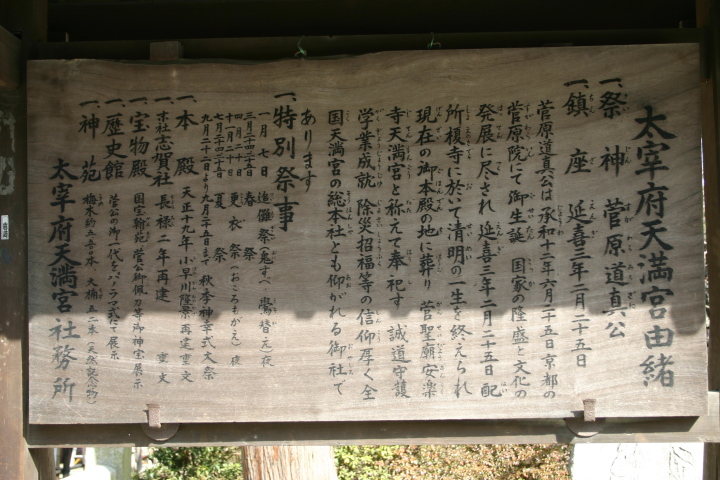 太宰府天満宮由緒
一、祭神 菅原道真公
一、鎮座 延喜三年二月二十五日
菅原道真公は承和十二年六月二十五日京都の
菅原院にて御生誕 国家の隆盛と文化の
発展に尽され 延喜三年二月二十五日 配
所榎寺に於いて清明の一生を終えられ
現在の御本殿の地に葬り 菅聖廟安楽
寺天満宮と称えて奉祀す 誠道守護
学業成就 除災招福等の信仰厚く全
国天満宮の総本社とも仰がれる御社で
あります
一、特別祭事
一月七日 追儺祭(鬼すべ・鷽替え)夜
三月二十四・二十五日 春祭
四月二日
十一月二十日 更衣祭(おころもがえ)夜
七月二十四・二十五日 夏祭
九月二十二日より九月二十五日まで 秋季神幸式大祭
一、本殿 天正十九年 小早川隆景再建 重文
一、末社志賀社 長禄二年再建 重文
一、宝物殿 国宝翰苑 菅公御佩刀等御神宝展示
一、歴史館 菅公の御一代をパノラマ式にて展示
一、神苑 梅木約五千本 大樟五二本(天然記念物)
太宰府天満宮社務所